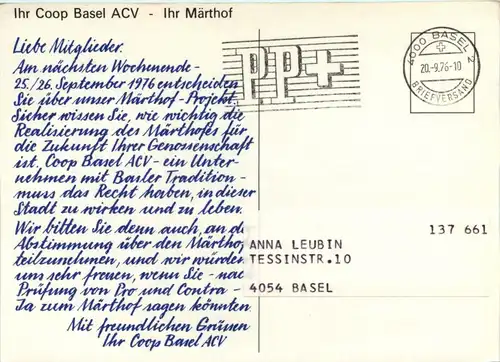 Ihr Coop Basel ACV - Ihr Märthof
Liebe Mitglieder.
Am nächsten Wochenende -
25./26. September 1976 entscheiden
Sie über unser Märthof-Projekt.
Sicher wissen Sie, wie wichtig die
Realisierung des Märthofes für
die Zukunft Ihrer Genossenschaft
ist. Coop Basel ACV - ein Unter-
nehmen mit Basler Tradition -
muss das Recht haben, in dieser
Stadt zu wirken und zu leben.
Wir bitten Sie denn auch, an d
Abstimmung über den Märthof
teilzunehmen, und wir würden
uns sehr freuen, wenn Sie - nac
Prüfung von Pro und Contra -
Ja zum Märthof sagen könnten.
Mit freundlichen Grüssen
Ihr Coop Basel ACV
PP+
4000 BASEL 2
20.-9.76-10
BRIEFVERSAND
137 661
ANNA LEUBIN
TESSINSTR.10
4054 BASEL